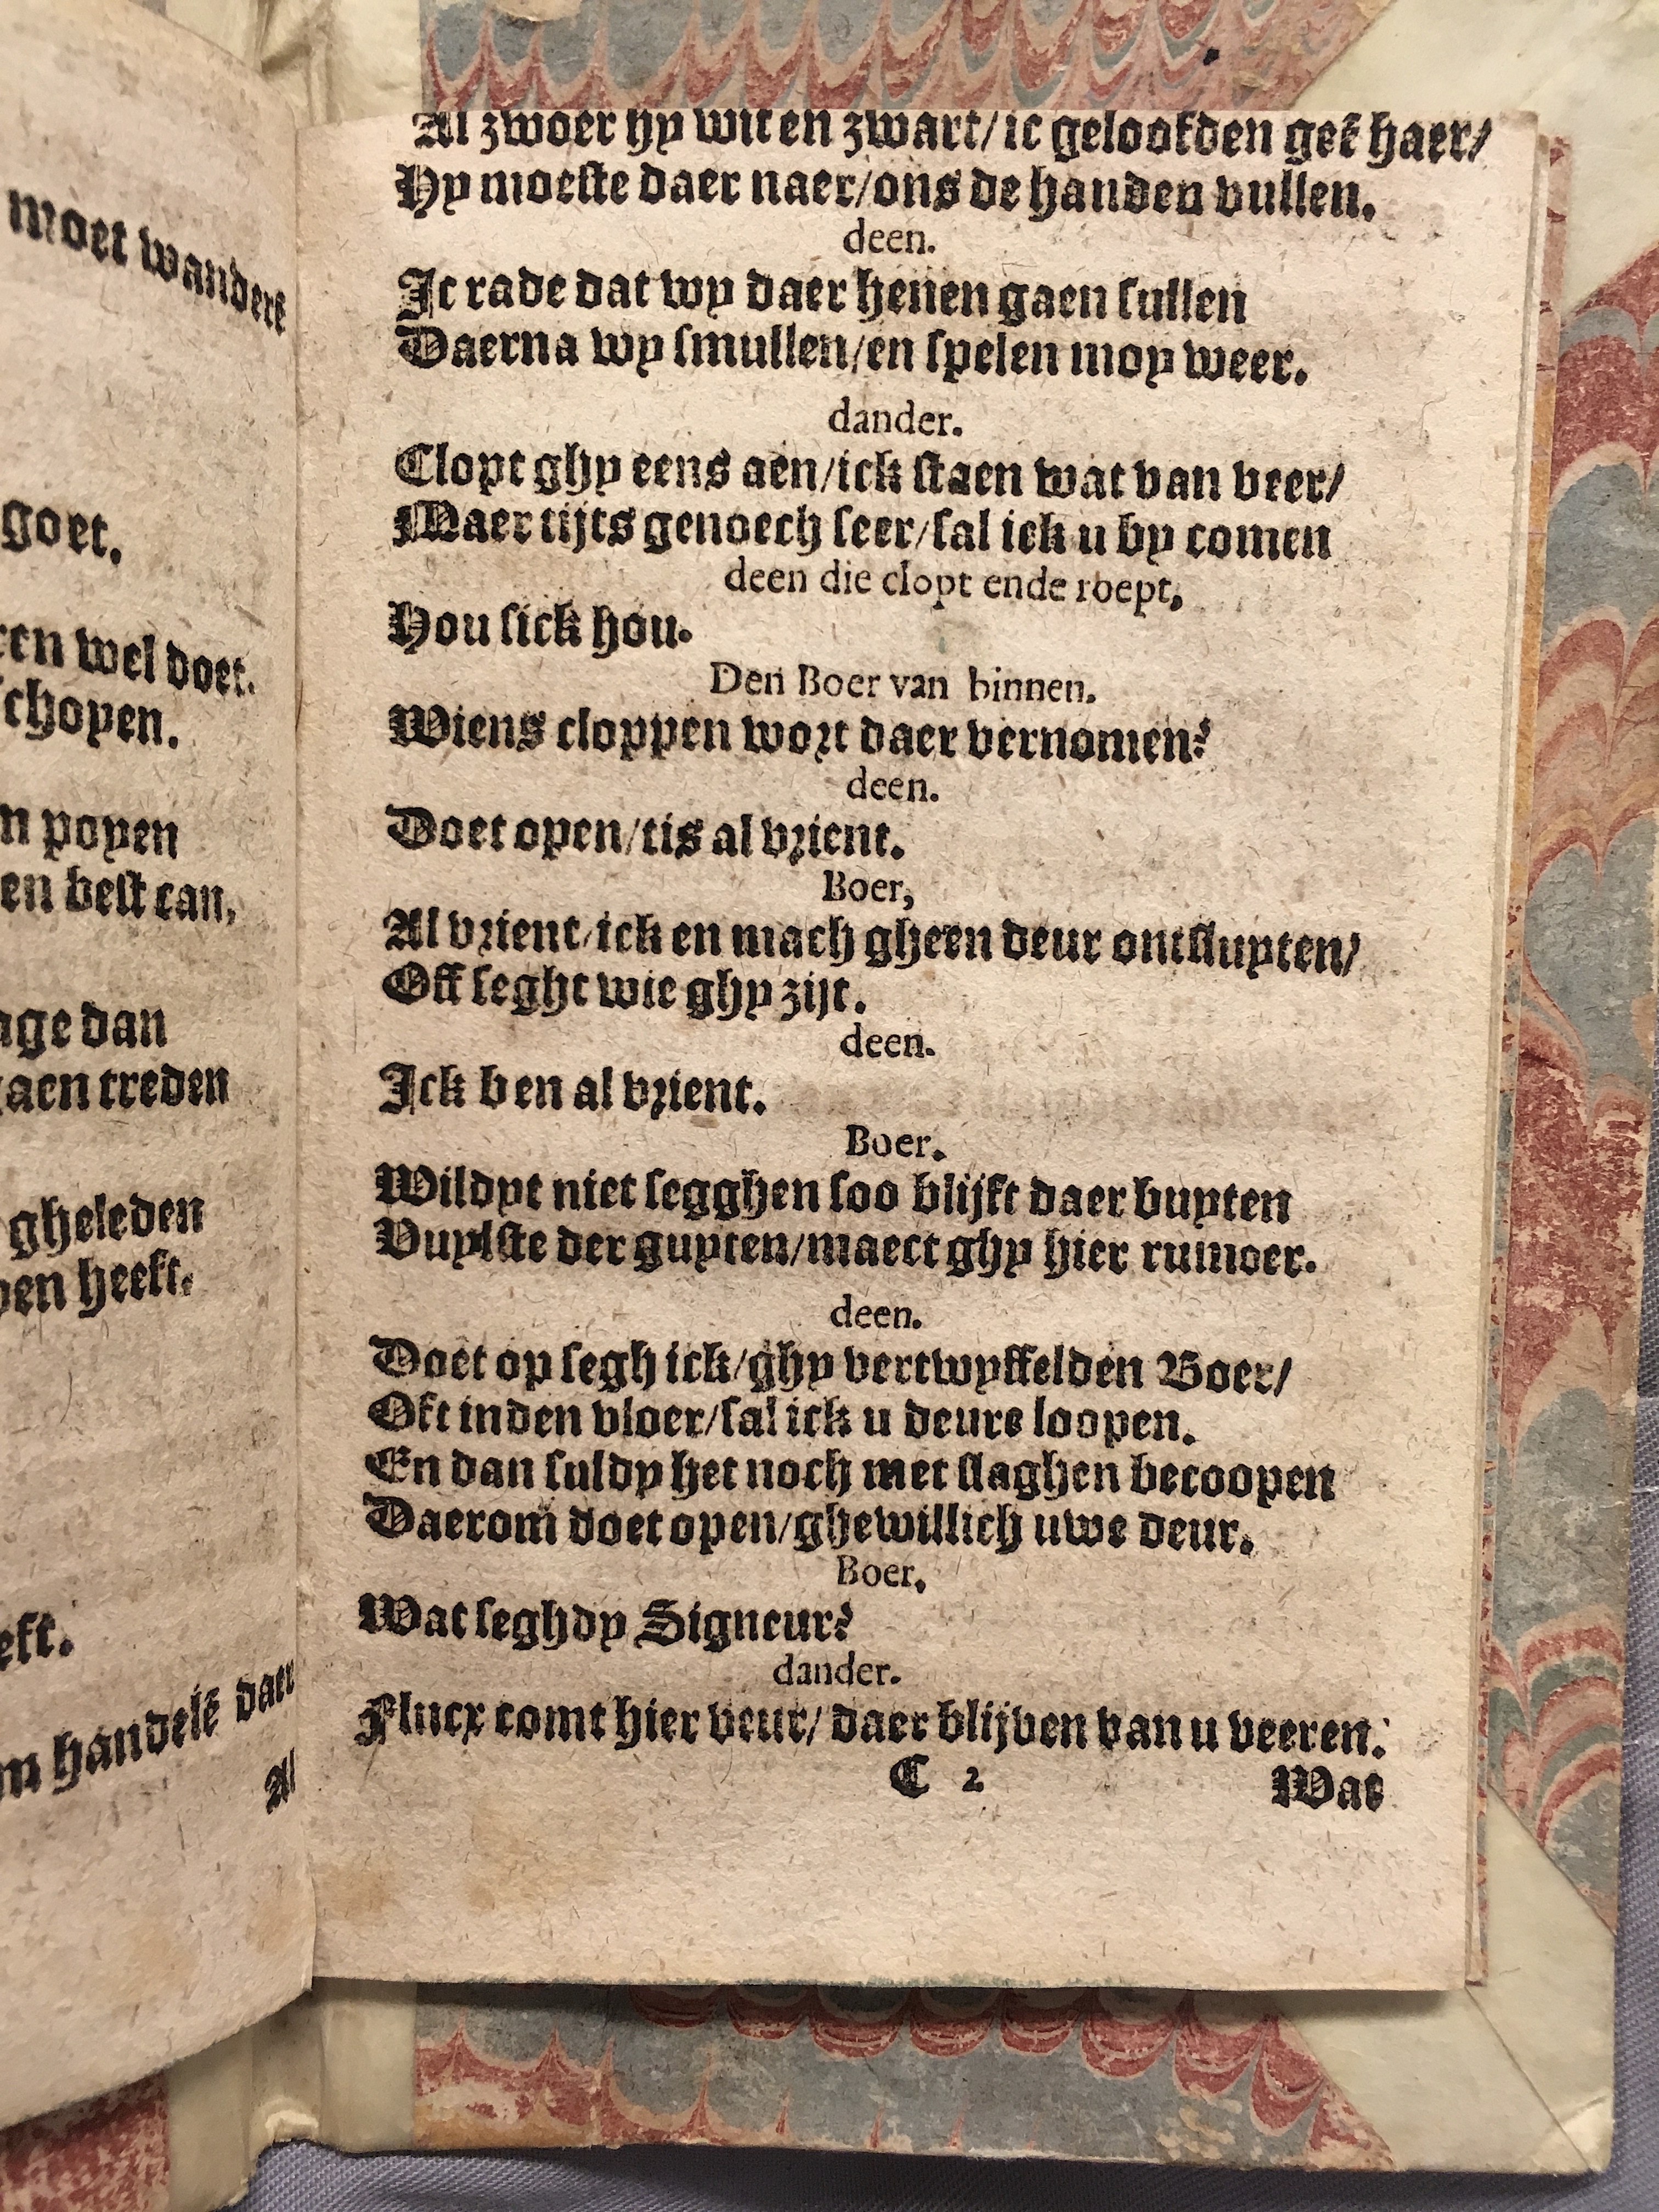 moet wanderē
goet.
en wel doet.
schopen.
n popen
en best can,
age dan
aen treden
gheleden
pen heeft.
eft.
m handelē daer
Al
Al zwoer hy wit en zwart/ic geloofden geē haer/
Hy moeste daer naer/ons de handen vullen.
deen.
Ic rade dat wy daer henen gaen sullen
Daerna wy smullen/en spelen moy weer.
dander.
Clopt ghy eens aen/ick staen wat van veer/
Maer tijts genoech seer/sal ick u by comen
deen die clopt ende roept,
Hou sick hou.
Den Boer van binnen.
Wiens cloppen wort daer vernomen?
deen.
Doet open/tis al vrient.
Boer,
Al vrient/ick en mach gheen deur ontsluyten/
Off seght wie ghy zijt.
deen.
Ick ben al vrient.
Boer.
Wildyt niet segghen soo blijft daer buyten
Vuylste der guyten/maect ghy hier rumoer.
deen.
Doet op segh ick/ghy vertwyffelden Boer/
Oft inden vloer/sal ick u deure loopen.
En dan suldy het noch met slaghen becoopen
Daerom doet open/ghewillich uwe deur.
Boer,
Wat seghdy Signeur?
dander.
Flucx comt hier veur/ daer blijven van u veeren.
C 2 Wat